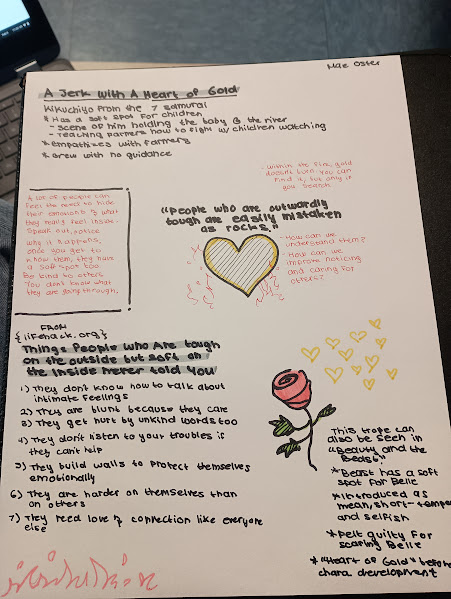 Mae Oster
A Jerk With A Heart of Gold
Kikuchiyo from the 7 samurai
* Has a soft spot for children
- scene of him holding the baby @ the river
- Teaching farmers how to fight w/ children watching
* empathizes with farmers
* Grew with no guidance
within the fire, gold
doesn't burn. You can
find it, but only if
you search
A lot of people can
feel the need to hide
their emotions & what
they really feel inside.
Speak out, notice
why it happens,
once you get to
know them, they have
a soft spot too.
Be kind to others
You don't know what
they are going through.
"People who are outwardly
tough are easily mistaken
as rocks."
- How can we
understand them?
- How can we
improve noticing
and caring for
others?
From
{lifehack.org}
Things People who Are tough
on the outside but soft on
the inside never told you
1) They don't know how to talk about
intimate feelings
2) They are blunt because they care
3) They get hurt by unkind words too
4) They don't listen to your troubles if
they can't help
5) They build walls to protect themselves
emotionally
6) They are harder on themselves than
on others
7) They need love & connection like everyone
else
This trope can
also be seen in
"Beauty and the
Beast"
* Beast has a soft
spot for Belle
* Introduced as
mean, short-temper
and selfish
* Felt guilty for
scaring Belle
* "Heart of Gold" before
chara development